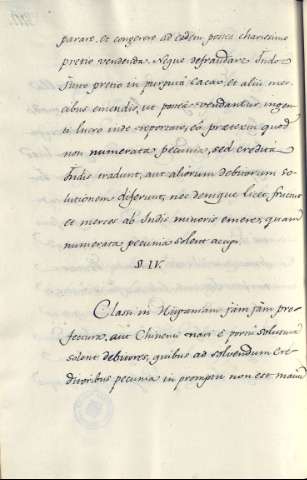 parare, et congerere ad eadem postea charissimo
pretio vendenda. Neque defraudare Indos
justo pretio in purgata cacao, et aliis mer-
cibus emendis, ut postea vendantur ingen-
ti lucro inde reportato, eo prætextu quod
non numerata pecunia, sed credita
Indis tradunt, aut aliorum debitorum so-
lutionem differunt, nec denique licet fructus
et merces ab Indis minoris emere, quam
numerata pecunia solent accipi.
§. IV.
Classi in Hispaniam jam jam pro-
fectura, aut Chinensi navi e portu solutura
solent debitores, quibus ad solvendum cre-
ditoribus pecunia in promptu non est,